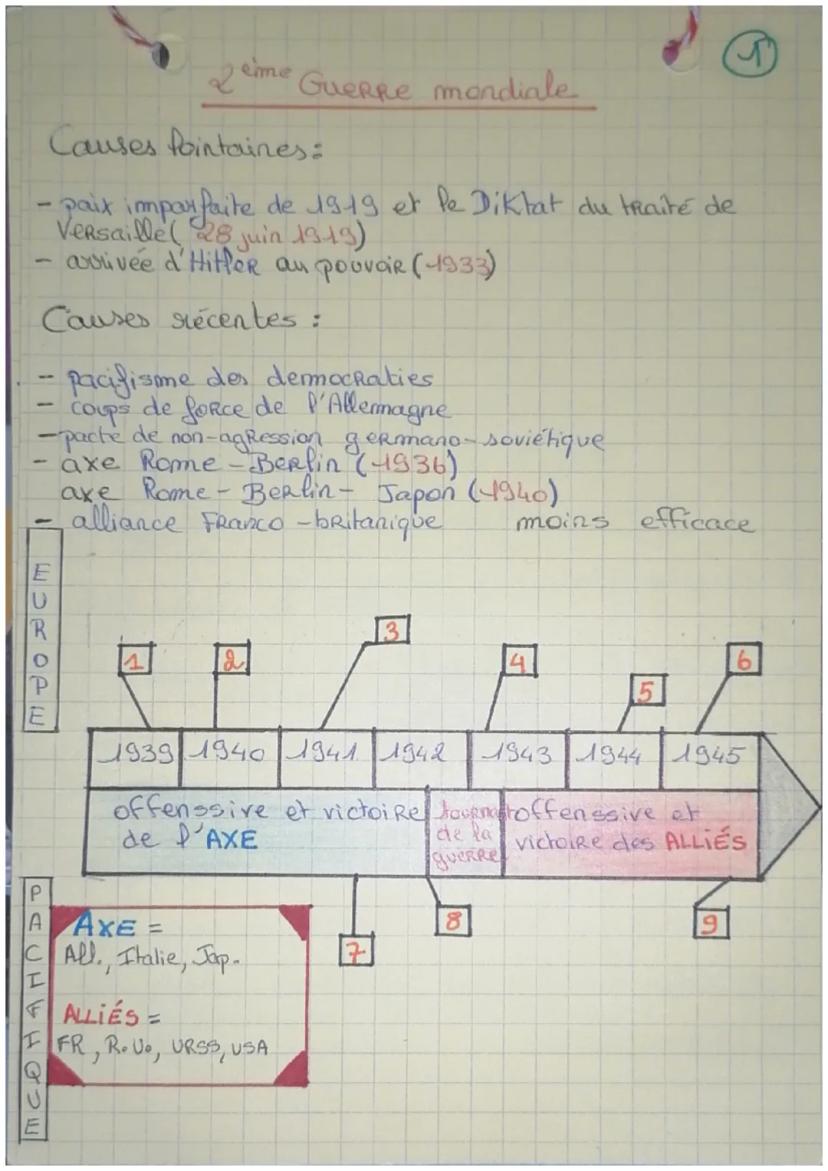 1
2ème Guerre mondiale
Causes lointaines :
- paix imparfaite de 1919 et le Diktat du traité de
Versaille ( 28 juin 1919)
- arrivée d'Hitler au pouvoir (1933)
Causes récentes :
- pacifisme des democraties
- coups de force de l'Allemagne
- pacte de non-agression germano-soviétique
- axe Rome - Berlin (1936)
axe Rome - Berlin - Japon (1940)
- alliance Franco-britanique moins efficace
EUROPE
1 2 3 4 5 6
1939 1940 1941 1942 1943 1944 1945
offenssive et victoire
de l'AXE
tournant
de la
guerre
offenssive et
victoire des ALLIÉS
PACIFIQUE
7 8 9
AXE =
All., Italie, Jap.
ALLIÉS =
FR, R.U., URSS, USA